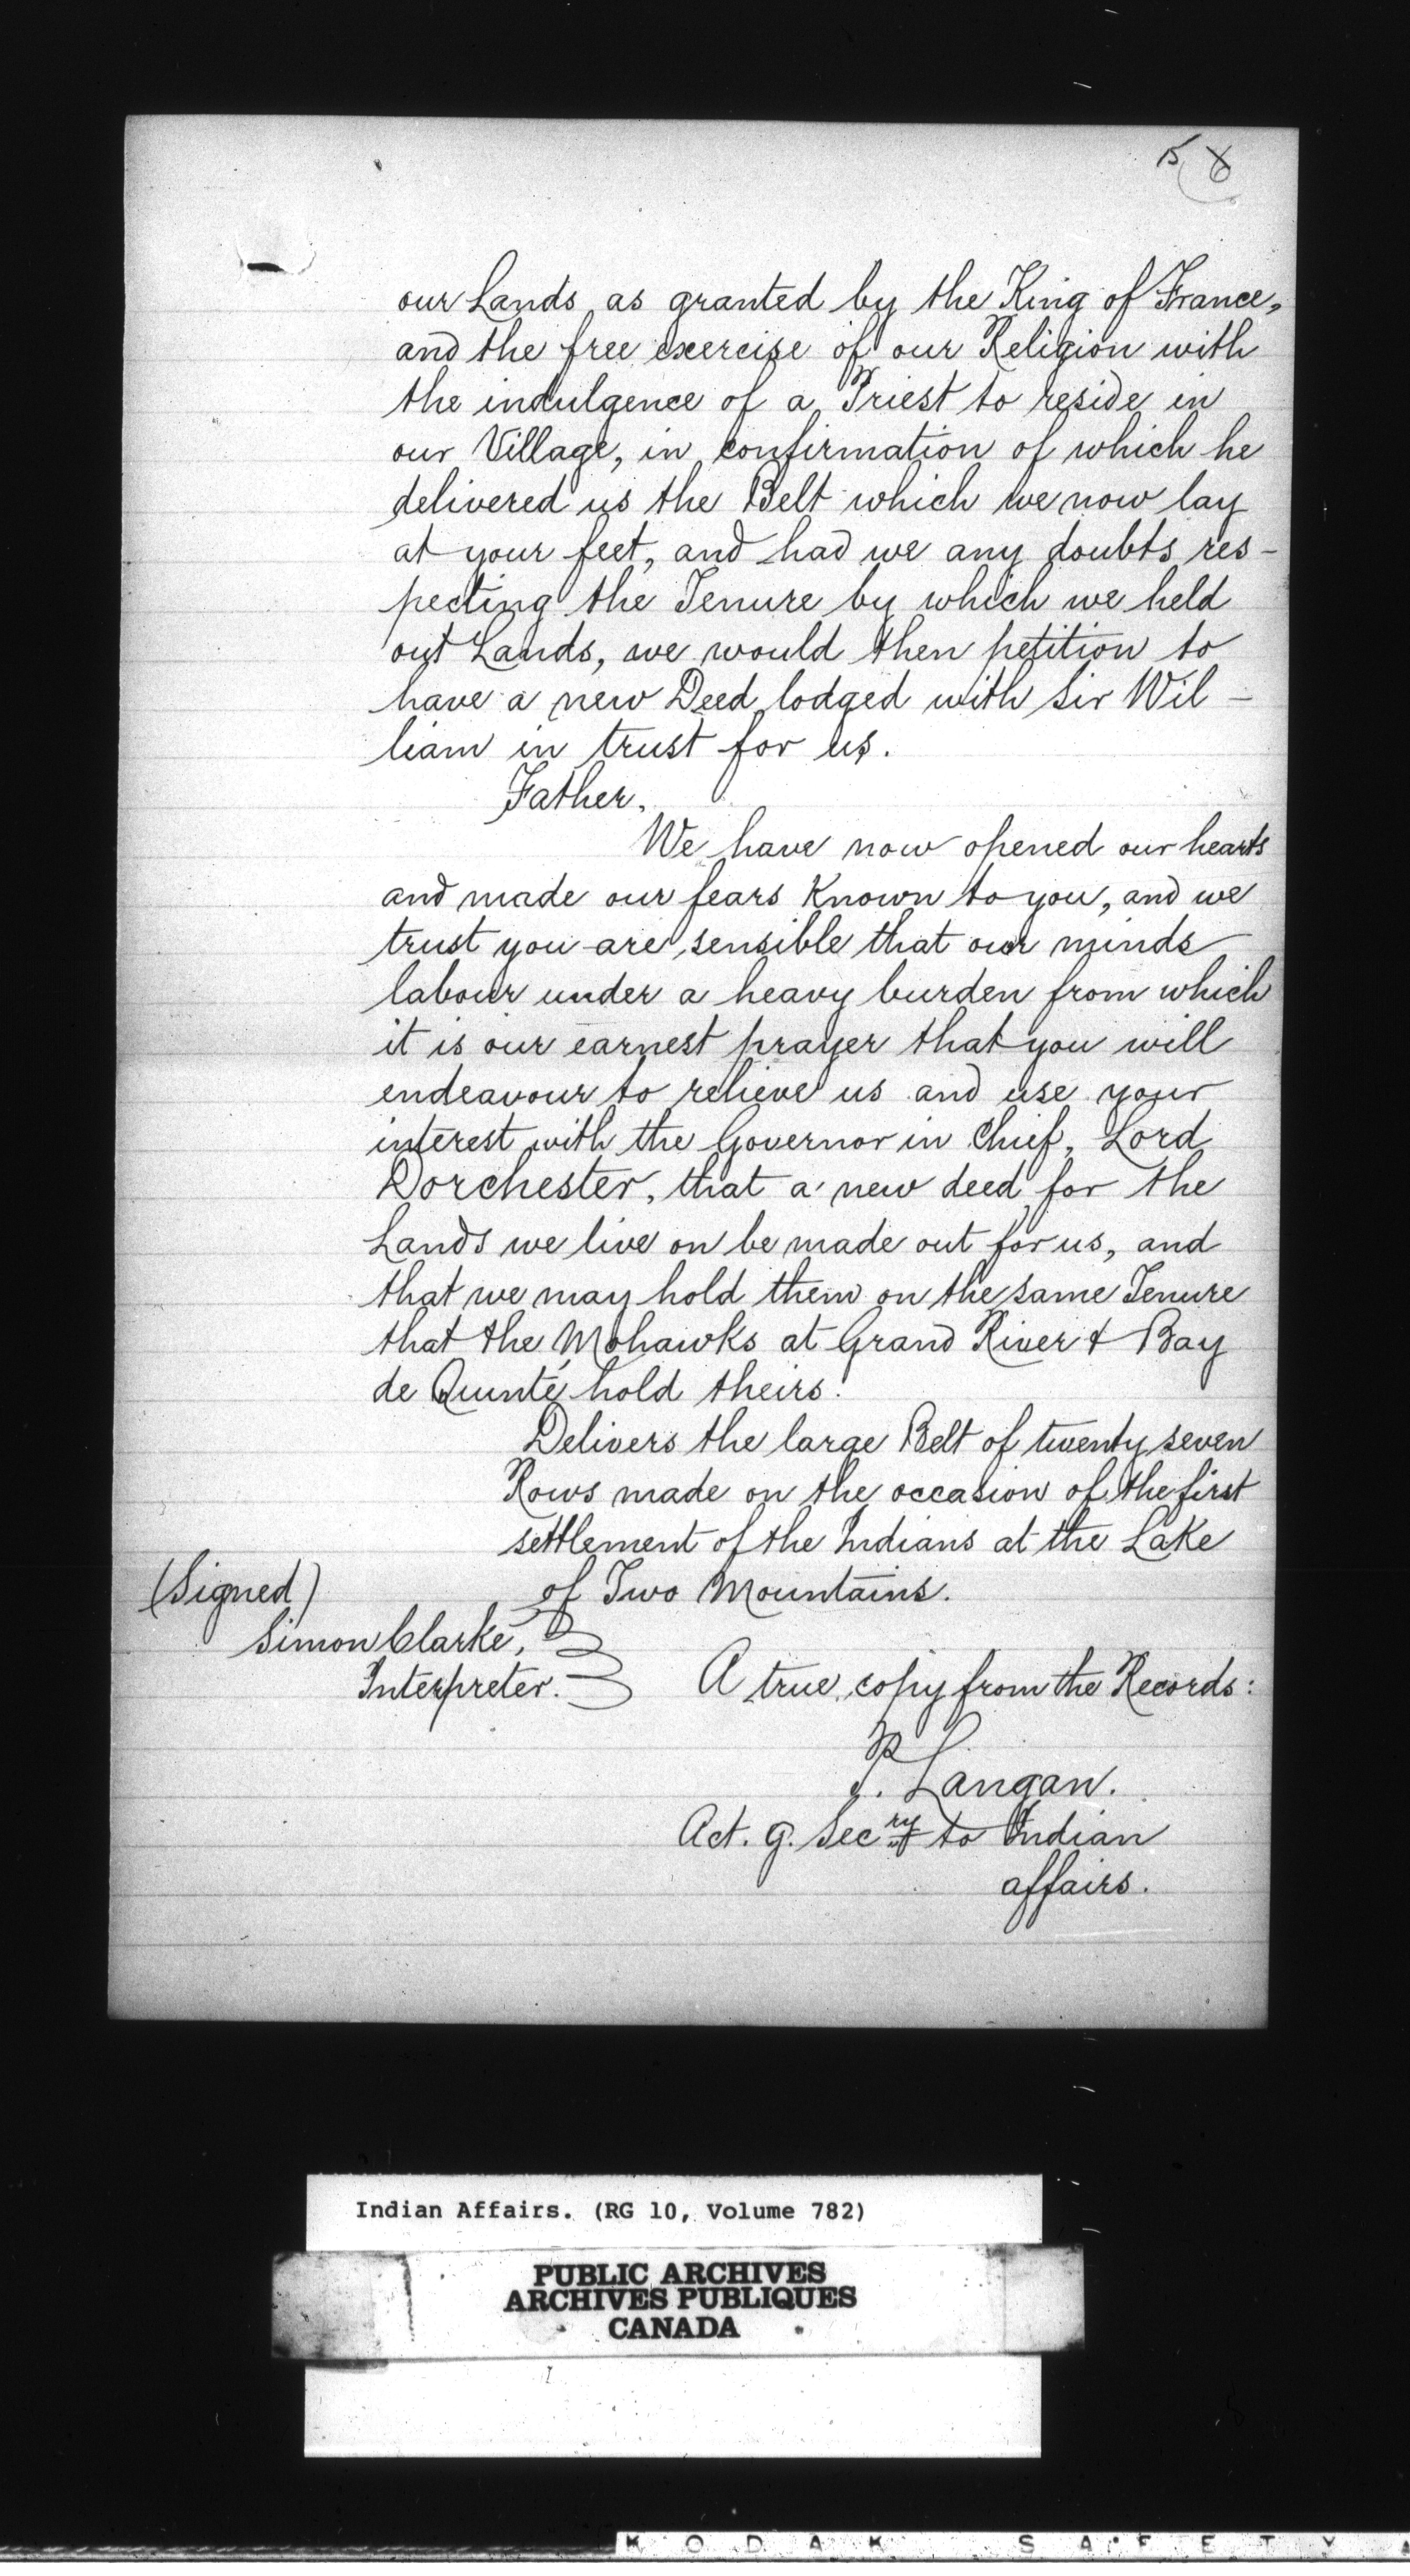 5 6
our Lands as granted by the King of France,
and the free exercise of our Religion with
the indulgence of a Priest to reside in
our Village, in confirmation of which he
delivered us the Belt which we now lay
at your feet, and had we any doubts res-
pecting the Tenure by which we held
out Lands, we would then petition to
have a new Deed lodged with Sir Wil-
liam in trust for us.
Father,
We have now opened our hearts
and made our fears Known to you, and we
trust you are sensible that our minds
labour under a heavy burden from which
it is our earnest prayer that you will
endeavour to relieve us and use your
interest with the Governor in Chief, Lord
Dorchester, that a new deed for the
Lands we live on be made out for us, and
that we may hold them on the same Tenure
that the Mohawks at Grand River & Bay
de Quinté hold theirs.
Delivers the large Belt of twenty seven
Rows made on the occasion of the first
settlement of the Indians at the Lake
of Two Mountains.
(Signed)
Simon Clarke,
Interpreter.
A true copy from the Records:
P. Langan.
Act. g. Secry to Indian
affairs.
Indian Affairs. (RG 10, Volume 782)
PUBLIC ARCHIVES
ARCHIVES PUBLIQUES
CANADA
KODAK SAFETY